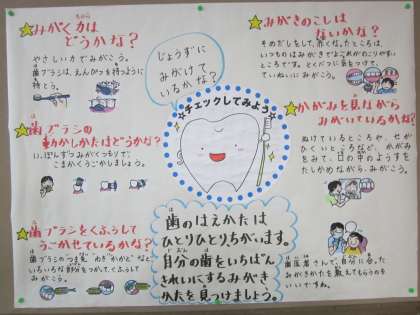 みがく力は
どうかな?
やさしい力でみがこう。
歯ブラシは、えんぴつを持つように
持とう。
歯ブラシの
動かしかたはどうかな?
いっぽんずつみがくつもりで、
こまかくうごかしましょう。
歯ブラシをくふうして
うごかせているかな?
歯ブラシの"つま先""わき""かかと"など
いろいろな部分をつかって、くふうして
みがこう。
じょうずに
みがけて
いるかな?
☆チェックしてみよう☆
歯のはえかたは
ひとりひとりちがいます。
自分の歯をいちばん
きれいにするみがき
かたを見つけましょう。
みがきのこしは
ないかな?
そめだしをして、赤くなったところは、
いつものはみがきで
ところです。とくに気をつけて、
ていねいにみがこう。
かがみを見ながら
みがいているかな?
ぬけているところや、せが
ひくいところなど、かがみ
をみて、口の中のようすを
たしかめながら、みがこう。
歯医者さんで、自分に合った
みがきかたを教えてもらうのも
いいですね。